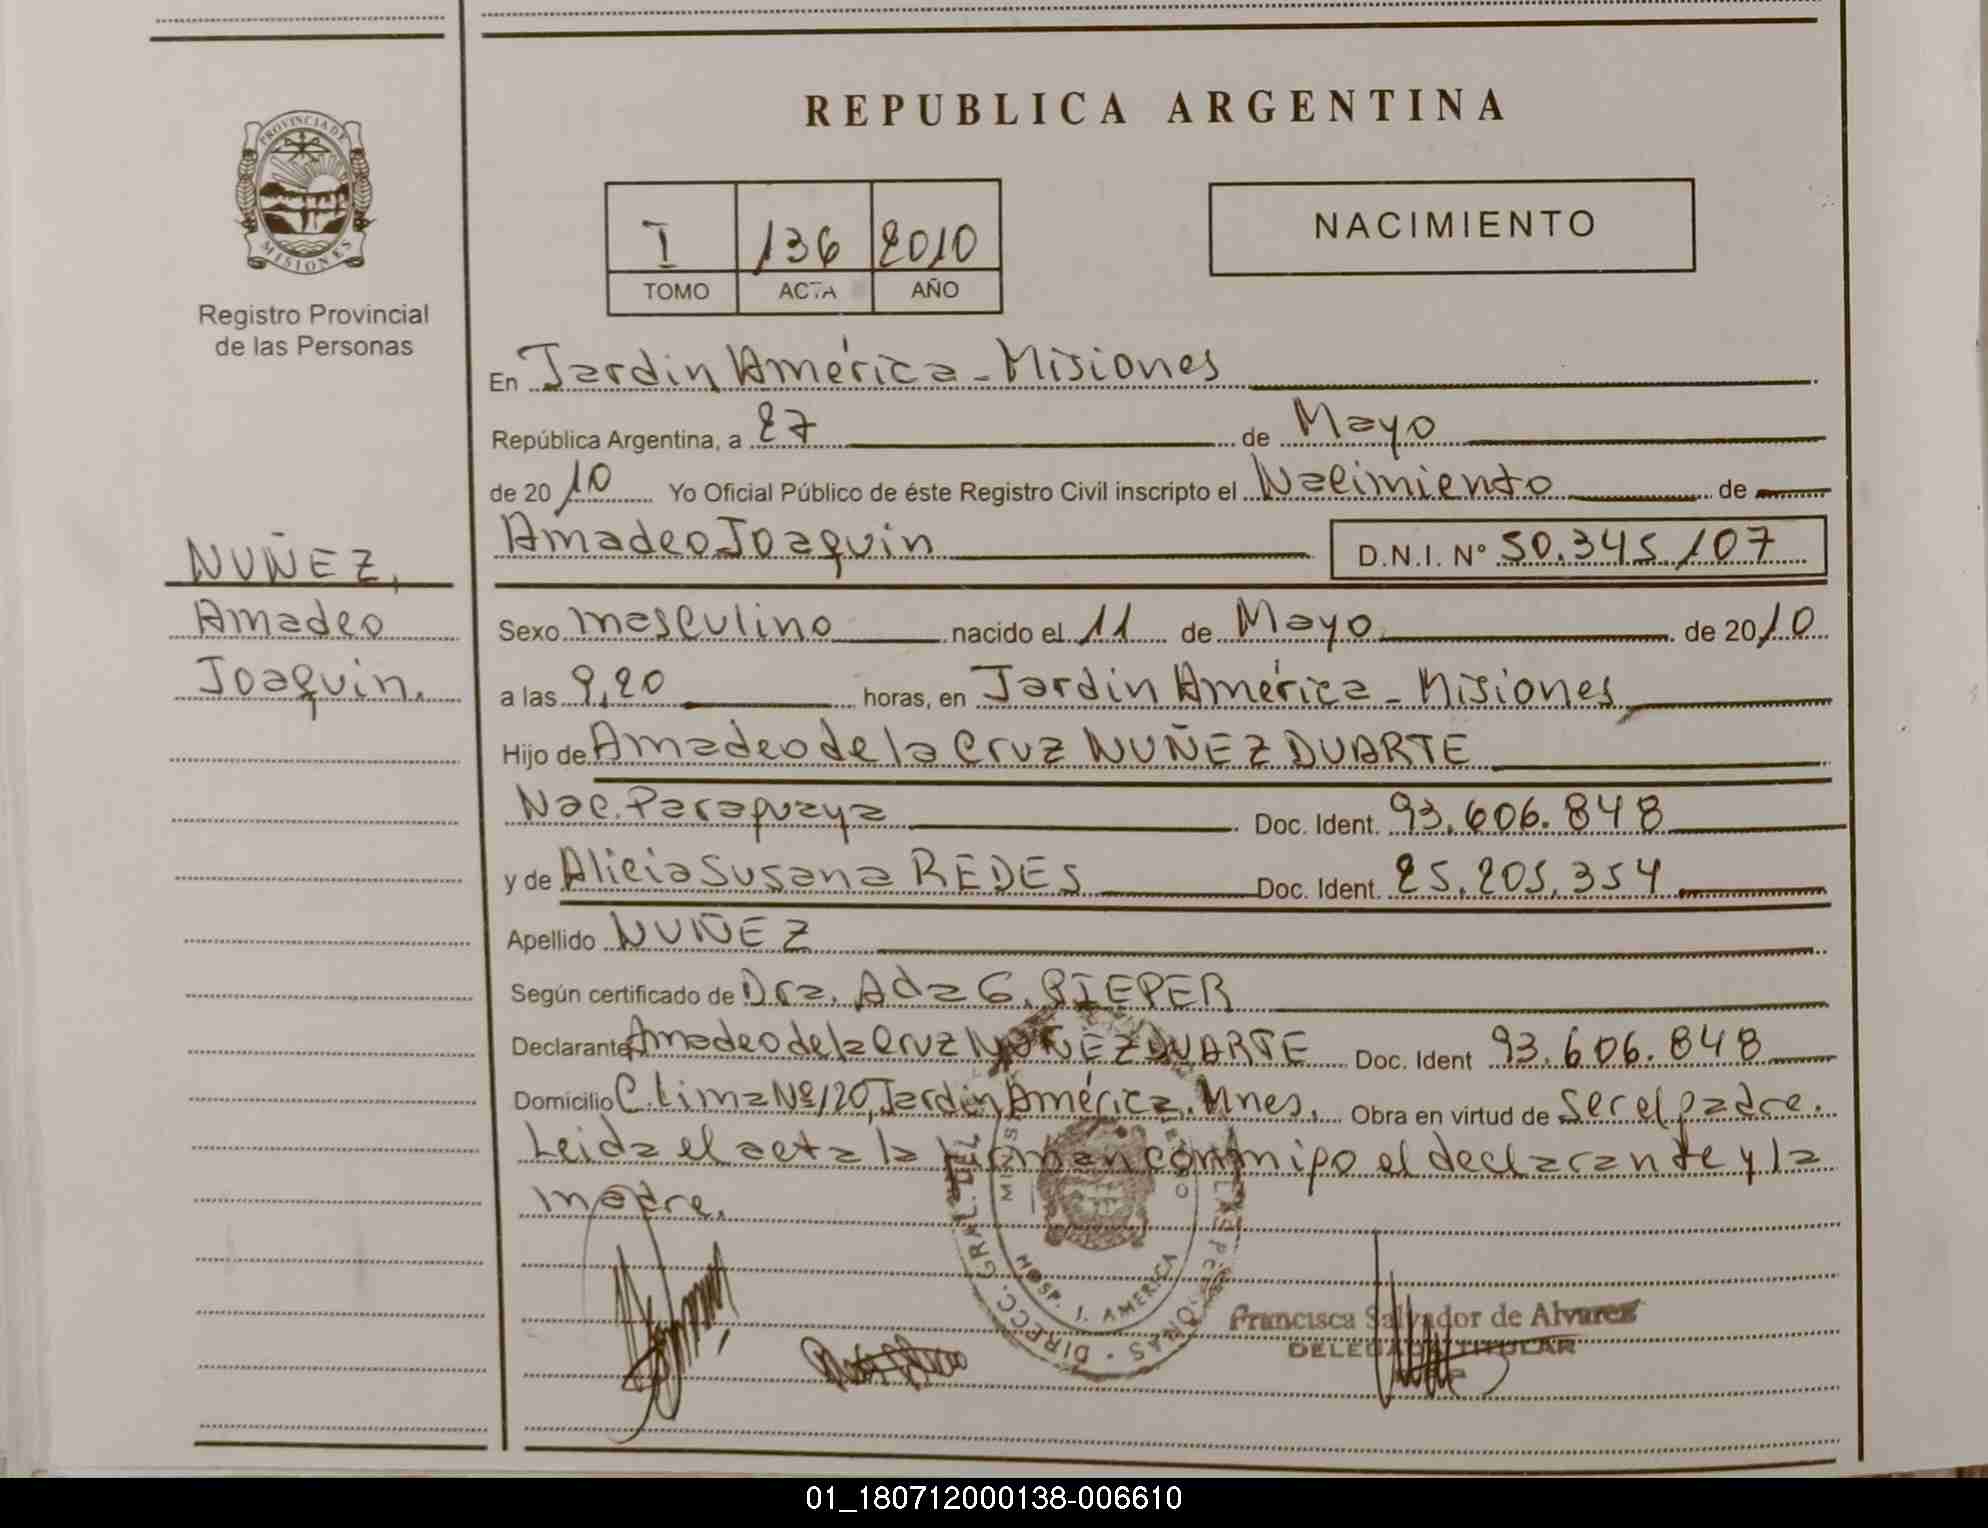 REPUBLICA ARGENTINA
PROVINCIA DE
MISIONES
Registro Provincial
de las Personas
I 136 2010
TOMO ACTA AÑO
NACIMIENTO
En Jardin América - Misiones
República Argentina, a 27 de Mayo
de 2010 Yo Oficial Público de éste Registro Civil inscripto el Nacimiento de
Amadeo Joaquin D.N.I. Nº 50.345.107
NUÑEZ,
Amadeo
Joaquin.
Sexo masculino nacido el 11 de Mayo de 2010
a las 9,20 horas, en Jardin América - Misiones
Hijo de Amadeo de la Cruz NUÑEZ DUARTE
Nac. Paraguaya Doc. Ident. 93.606.848
y de Alicia Susana REDES Doc. Ident. 25.205.354
Apellido NUÑEZ
Según certificado de Dra. Ada G. BIEPER
Declarante Amadeo de la Cruz NUÑEZ DUARTE Doc. Ident 93.606.848
Domicilio C. Lima Nº 120, Jardin América. Mnes. Obra en virtud de ser el padre.
Leida el acta la firman conmigo el declarante y la
madre.
DIRECC. GRAL. DEL
HOSP. J. AMERICA
Francisca Salvador de Alvarez
DELEGADA TITULAR
01_180712000138-006610